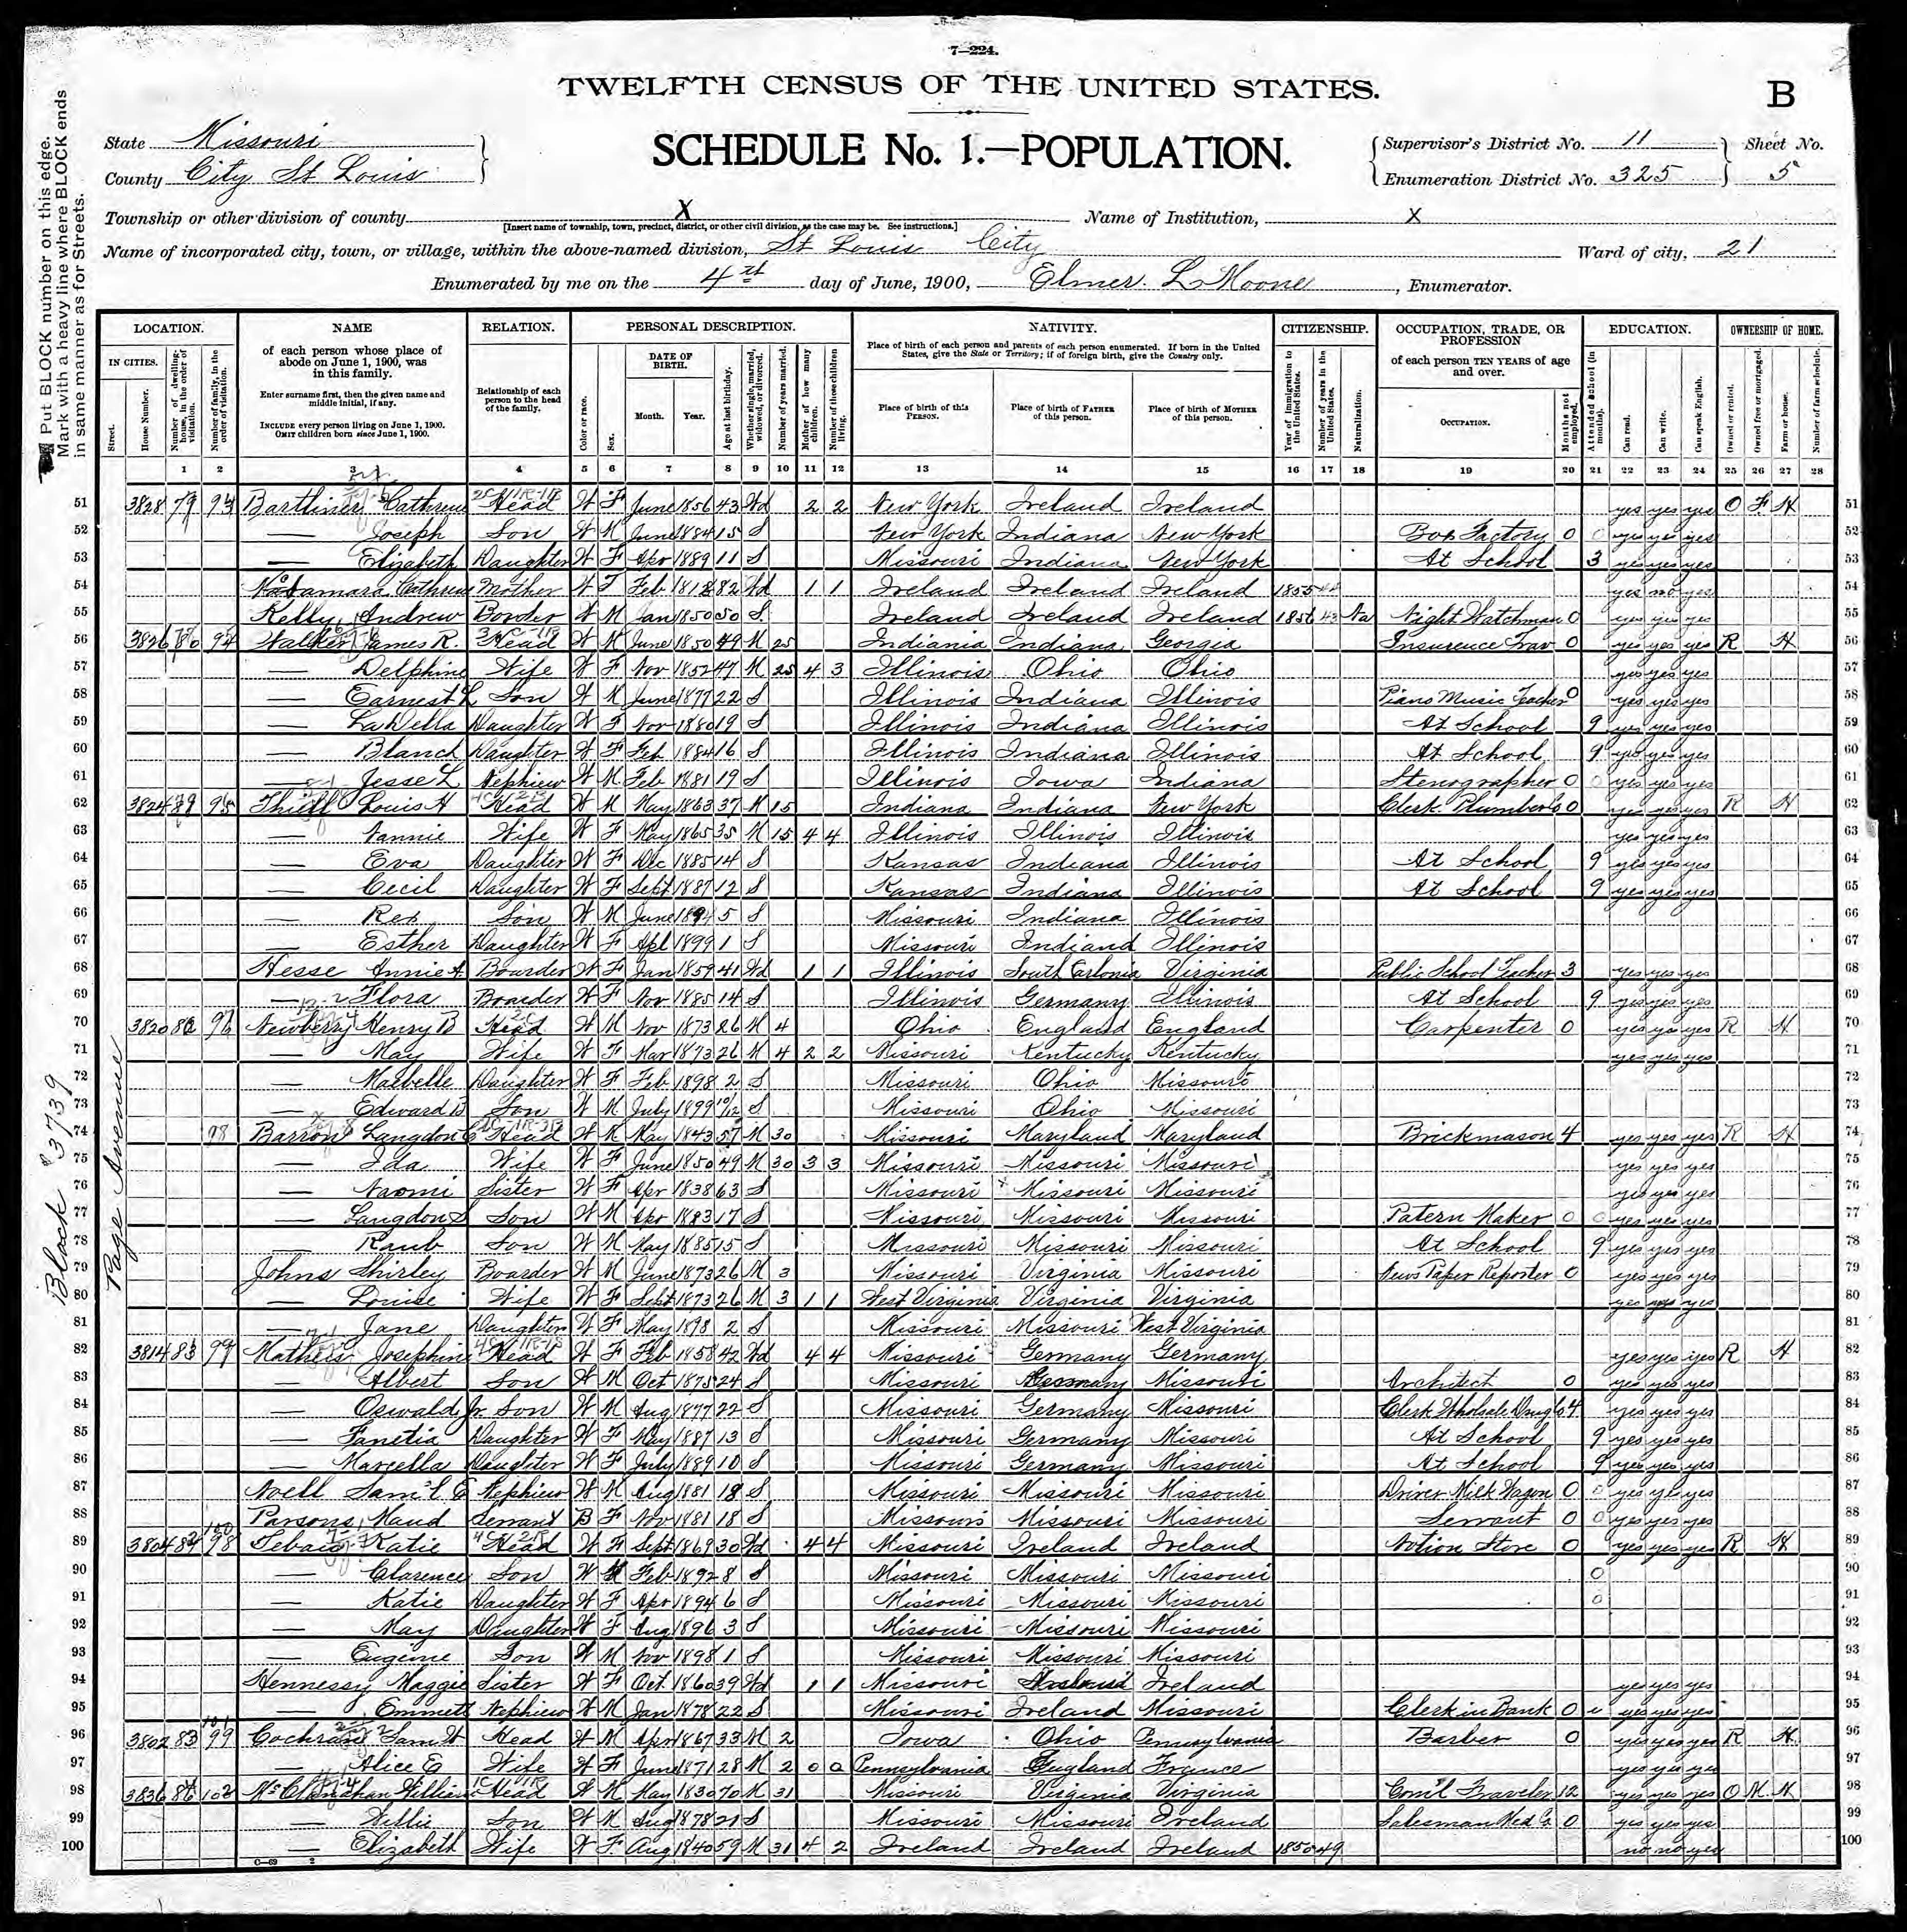 7—224.
TWELFTH CENSUS OF THE UNITED STATES.
B
SCHEDULE No. 1.—POPULATION.
State Missouri
County City St Louis
Supervisor's District No. 11
Enumeration District No. 325
Sheet No. 5
Township or other division of county X Name of Institution, X
[Insert name of township, town, precinct, district, or other civil division, as the case may be. See instructions.]
Name of incorporated city, town, or village, within the above-named division, St Louis City Ward of city, 21
Enumerated by me on the 4th day of June, 1900, Elmer L Moone, Enumerator.
Put BLOCK number on this edge.
Mark with a heavy line where BLOCK ends
in same manner as for Streets.
LOCATION. NAME RELATION. PERSONAL DESCRIPTION. NATIVITY. CITIZENSHIP. OCCUPATION, TRADE, OR PROFESSION EDUCATION. OWNERSHIP OF HOME.
IN CITIES.
Street.
House Number.
Number of dwelling-house, in the order of visitation.
Number of family, in the order of visitation.
of each person whose place of abode on June 1, 1900, was in this family.
Enter surname first, then the given name and middle initial, if any.
INCLUDE every person living on June 1, 1900.
OMIT children born since June 1, 1900.
Relationship of each person to the head of the family.
Color or race.
Sex.
DATE OF BIRTH.
Month. Year.
Age at last birthday.
Whether single, married, widowed, or divorced.
Number of years married.
Mother of how many children.
Number of these children living.
Place of birth of each person and parents of each person enumerated. If born in the United States, give the State or Territory; if of foreign birth, give the Country only.
Place of birth of this PERSON.
Place of birth of FATHER of this person.
Place of birth of MOTHER of this person.
Year of immigration to the United States.
Number of years in the United States.
Naturalization.
of each person TEN YEARS of age and over.
OCCUPATION.
Months not employed.
Attended school (in months).
Can read.
Can write.
Can speak English.
Owned or rented.
Owned free or mortgaged.
Farm or house.
Number of farm schedule.
1 2 3 4 5 6 7 8 9 10 11 12 13 14 15 16 17 18 19 20 21 22 23 24 25 26 27 28
Block # 3739
Page Avenue
51 3828 79 93 Cathrene Head W F June 1856 43 Wd 2 2 New York Ireland Ireland yes yes yes O F H 51
52 — Joseph Son W M June 1884 15 S New York Indiana New York Box Factory 0 yes yes yes 52
53 — Elizabeth Daughter W F Apr 1889 11 S Missouri Indiana New York At School 3 yes yes yes 53
54 Cathrene Mother W F Feb 82 Wd 1 1 Ireland Ireland Ireland 1855 yes no yes 54
55 Kelly Andrew Border W M Jan 1850 50 S Ireland Ireland Ireland 1856 43 Na Night Watchman 0 yes yes yes 55
56 3826 80 94 Walker James R. Head W M June 1850 49 M 25 Indiania Indiana Georgia Insurence Trav 0 yes yes yes R H 56
57 — Delphine Wife W F Nov 1852 47 M 25 4 3 Illinois Ohio Ohio yes yes yes 57
58 — Earnest L Son W M June 1877 22 S Illinois Indiana Illinois Piano Music Teacher 0 yes yes yes 58
59 — LaVella Daughter W F Nov 1880 19 S Illinois Indiana Illinois At School 9 yes yes yes 59
60 — Blanch Daughter W F Feb 1884 16 S Illinois Indiana Illinois At School 9 yes yes yes 60
61 — Jesse L Nephiew W M Feb 1881 19 S Illinois Iowa Indiana Stenographer 0 yes yes yes 61
62 3824 95 Louis H Head W M May 1863 37 M 15 Indiana Indiana New York Clerk Plumber Co 0 yes yes yes R H 62
63 — Nannie Wife W F May 1865 35 M 15 4 4 Illinois Illinois Illinois yes yes yes 63
64 — Eva Daughter W F Dec 1885 14 S Kansas Indiana Illinois At School 9 yes yes yes 64
65 — Cecil Daughter W F Sept 1887 12 S Kansas Indiana Illinois At School 9 yes yes yes 65
66 — Rex Son W M June 1894 5 S Missouri Indiana Illinois 66
67 — Esther Daughter W F Apl 1899 1 S Missouri Indiana Illinois 67
68 Hesse Annie A. Boarder W F Jan 1859 41 Wd 1 1 Illinois South Carlonia Virginia Public School Teacher 3 yes yes yes 68
69 — Flora Boarder W F Nov 1885 14 S Illinois Germany Illinois At School 9 yes yes yes 69
70 3820 82 96 Newberry Henry B Head W M Nov 1873 26 M 4 Ohio England England Carpenter 0 yes yes yes R H 70
71 — May Wife W F Mar 1873 26 M 4 2 2 Missouri Kentucky Kentucky yes yes yes 71
72 — Maebelle Daughter W F Feb 1898 2 S Missouri Ohio Missouri 72
73 — Edward B Son W M July 1899 10/12 S Missouri Ohio Missouri 73
74 98 Barron Langdon C Head W M May 1843 57 M 30 Missouri Maryland Maryland Brickmason 4 yes yes yes R H 74
75 — Ida Wife W F June 1850 49 M 30 3 3 Missouri Missouri Missouri yes yes yes 75
76 — Naomi Sister W F Apr 1838 63 S Missouri Missouri Missouri yes yes yes 76
77 — Langdon S Son W M Apr 1883 17 S Missouri Missouri Missouri Patern Maker 0 yes yes yes 77
78 — Raub Son W M May 1885 15 S Missouri Missouri Missouri At School 9 yes yes yes 78
79 Johns Shirley Boarder W M June 1873 26 M 3 Missouri Virginia Missouri News Paper Reporter 0 yes yes yes 79
80 — Louise Wife W F Sept 1873 26 M 3 1 1 West Virginia Virginia Virginia yes yes yes 80
81 — Jane Daughter W F May 1898 2 S Missouri Missouri West Virginia 81
82 3814 83 99 Matheis Josephine Head W F Feb 1858 42 Wd 4 4 Missouri Germany Germany yes yes yes R H 82
83 — Albert Son W M Oct 1875 24 S Missouri Germany Missouri Architect 0 yes yes yes 83
84 — Oswald Jr. Son W M Aug 1877 22 S Missouri Germany Missouri Clerk Wholsale Drug Co 4 yes yes yes 84
85 — Fanetia Daughter W F May 1887 13 S Missouri Germany Missouri At School 9 yes yes yes 85
86 — Marcella Daughter W F July 1889 10 S Missouri Germany Missouri At School 9 yes yes yes 86
87 Noell Sam'l E Nephiew W M Aug 1881 18 S Missouri Missouri Missouri Driver Milk Wagon 0 yes yes yes 87
88 Parsons Maud Servant B F Nov 1881 18 S Missouri Missouri Missouri Servant 0 yes yes yes 88
89 3804 84 100 98 Katie Head W F Sept 1869 30 Wd 4 4 Missouri Ireland Ireland Notion Store 0 yes yes yes R H 89
90 — Clarence Son W M Feb 1892 8 S Missouri Missouri Missouri 0 90
91 — Katie Daughter W F Apr 1894 6 S Missouri Missouri Missouri 0 91
92 — May Daughter W F Aug 1896 3 S Missouri Missouri Missouri 92
93 — Eugene Son W M Nov 1898 1 S Missouri Missouri Missouri 93
94 Hennessy Maggie Sister W F Oct 1860 39 Wd 1 1 Missouri Ireland yes yes yes 94
95 — Emmett Nephiew W M Jan 1878 22 S Missouri Ireland Missouri Clerk in Bank 0 yes yes yes 95
96 3802 85 101 99 Cochran Sam W Head W M Apr 1867 33 M 2 Iowa Ohio Pennsylvania Barber 0 yes yes yes R H 96
97 — Alice E Wife W F June 1871 28 M 2 0 0 Pennsylvania England France yes yes yes 97
98 3836 86 102 McClanahan William Head W M May 1830 70 M 31 Missouri Virginia Virginia Com'l Traveler 12 yes yes yes O M H 98
99 — Willie Son W M Aug 1878 21 S Missouri Missouri Ireland Salesman Med Co 0 yes yes yes 99
100 — Elizabeth Wife W F Aug 1840 59 M 31 4 2 Ireland Ireland Ireland 1850 49 no no yes 100